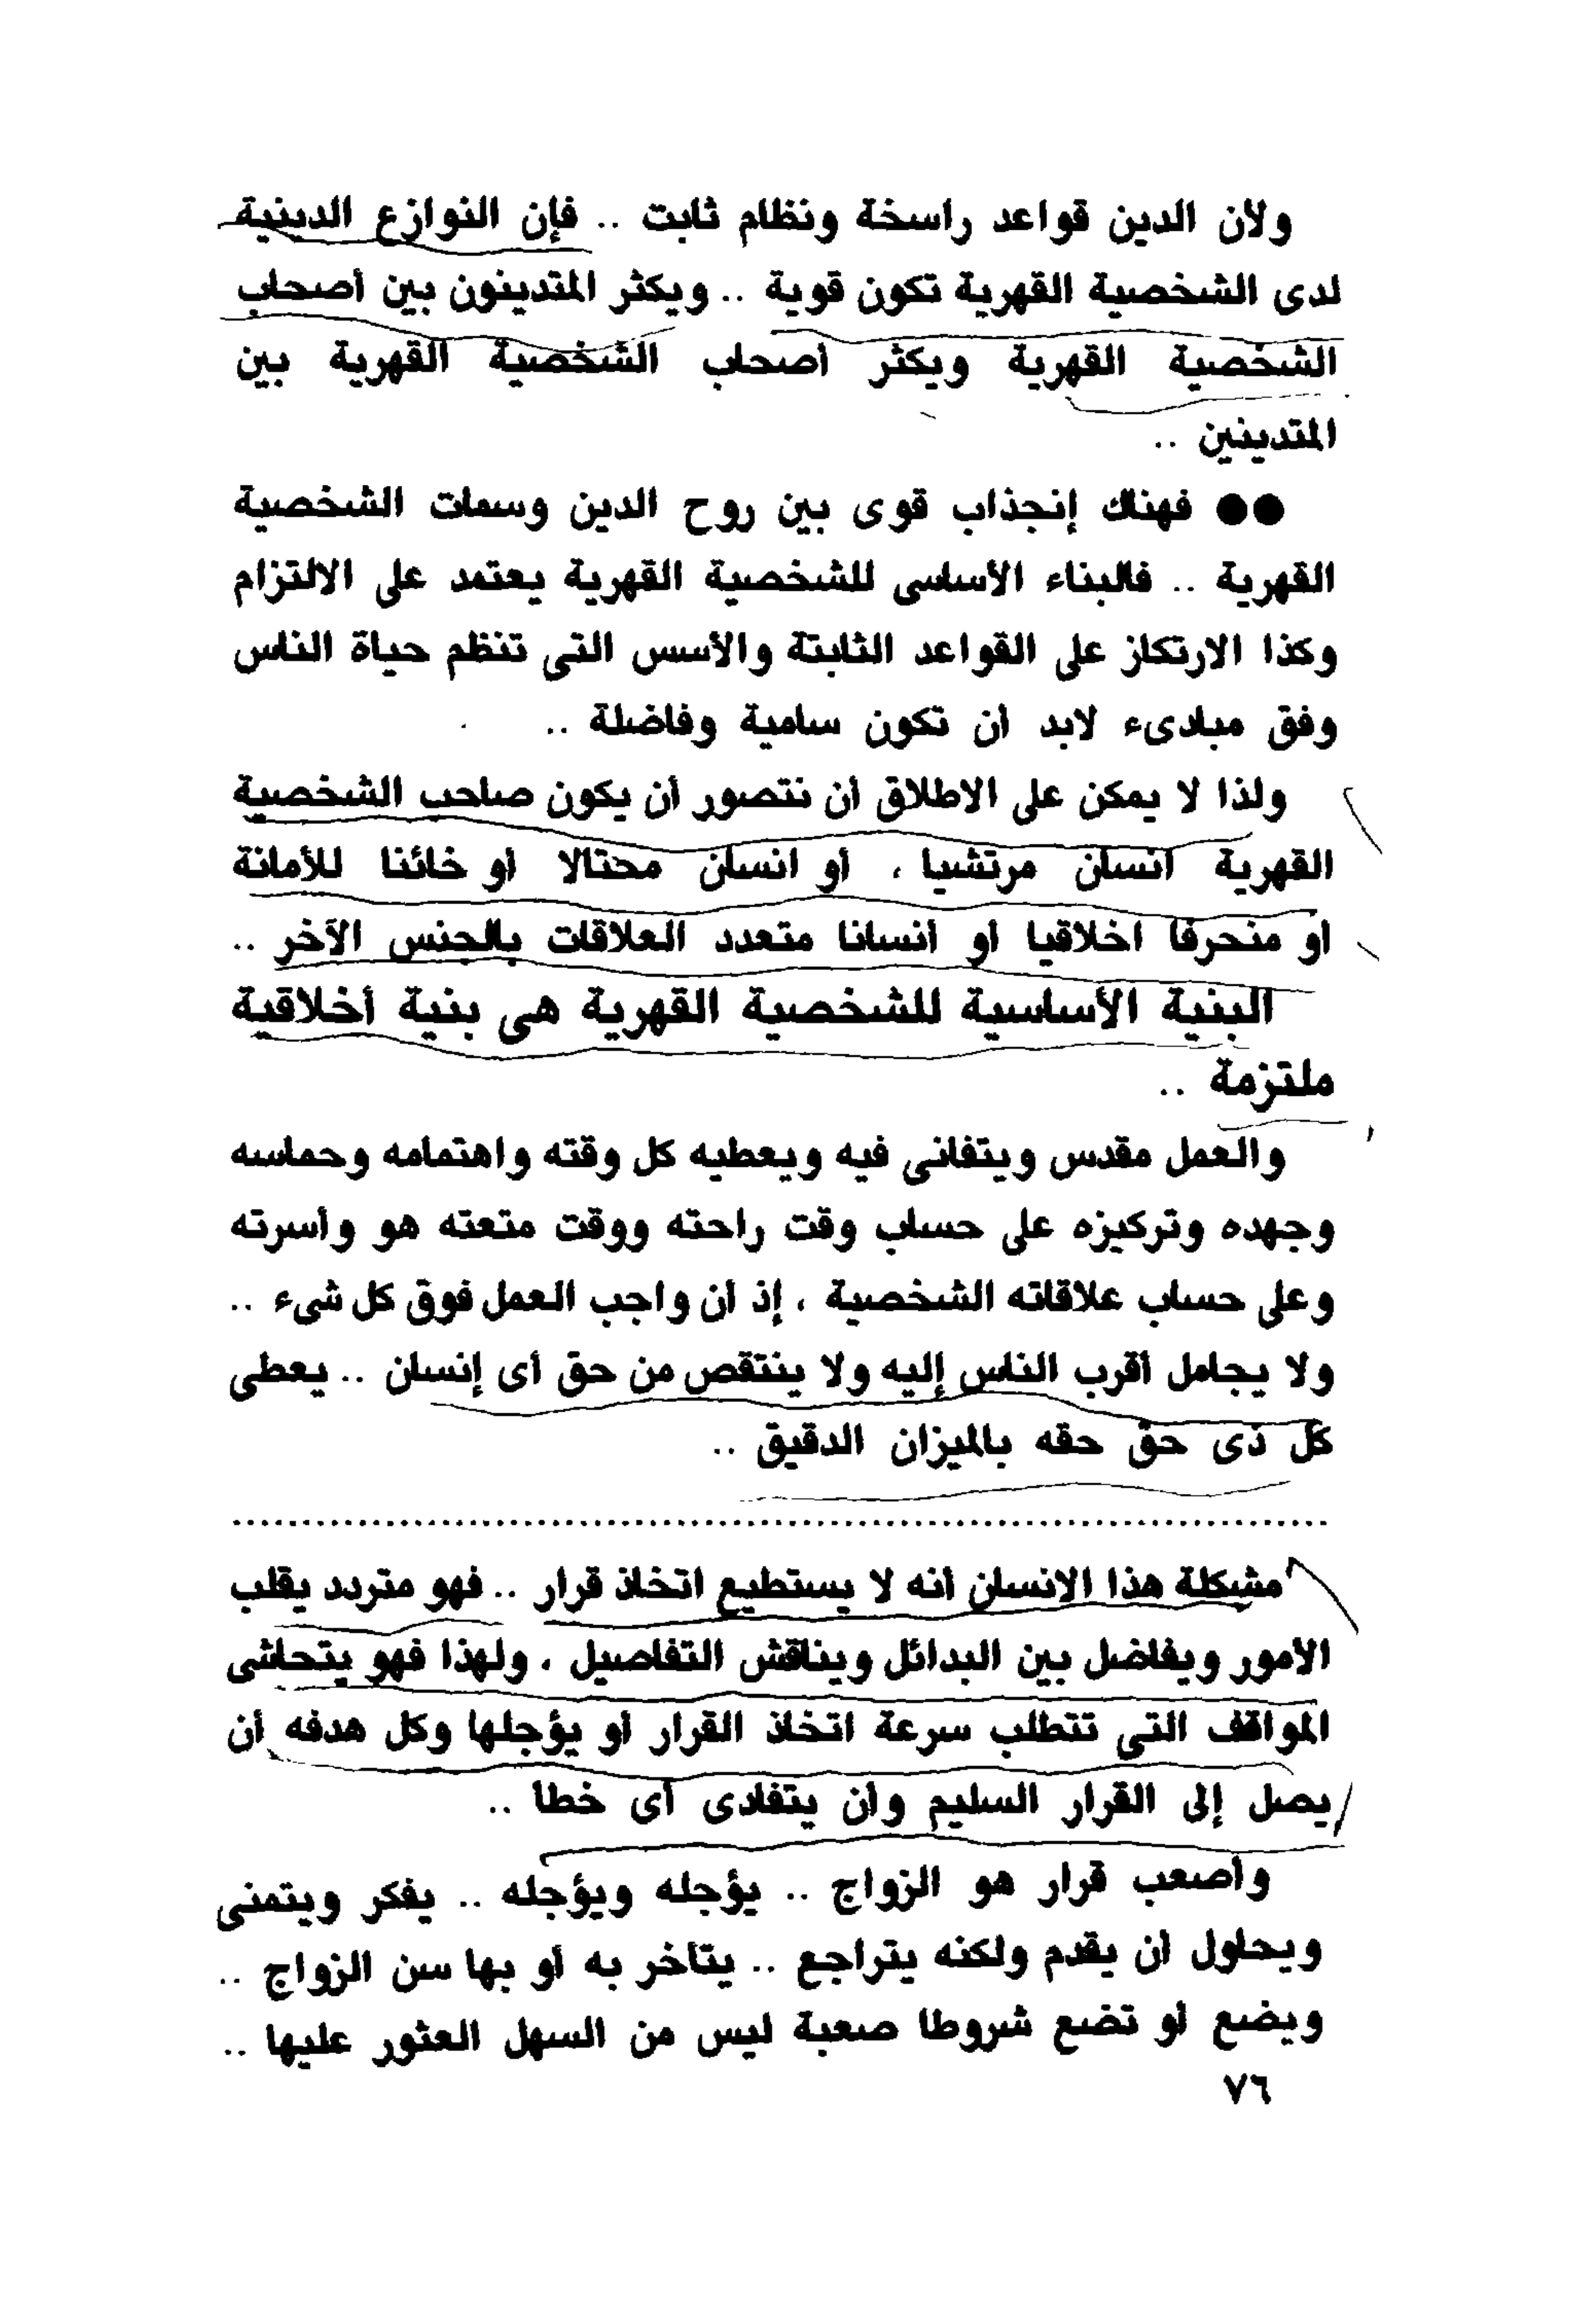 ولأن الدين قواعد راسخة ونظام ثابت .. فإن النوازع الدينية
لدى الشخصية القهرية تكون قوية .. ويكثر المتدينون بين أصحاب
الشخصية القهرية ويكثر أصحاب الشخصية القهرية بين
المتدينين ..
●● فهناك إنجذاب قوى بين روح الدين وسمات الشخصية
القهرية .. فالبناء الأساسى للشخصية القهرية يعتمد على الالتزام
وكذا الارتكاز على القواعد الثابتة والأسس التى تنظم حياة الناس
وفق مبادىء لابد أن تكون سامية وفاضلة ..
ولذا لا يمكن على الاطلاق أن نتصور أن يكون صاحب الشخصية
القهرية انسان مرتشيا ، أو انسان محتالا أو خائنا للأمانة
أو منحرفا اخلاقيا أو أنسانا متعدد العلاقات بالجنس الآخر ..
البنية الأساسية للشخصية القهرية هى بنية أخلاقية
ملتزمة ..
والعمل مقدس ويتفانى فيه ويعطيه كل وقته واهتمامه وحماسه
وجهده وتركيزه على حساب وقت راحته ووقت متعته هو وأسرته
وعلى حساب علاقاته الشخصية ، إذ أن واجب العمل فوق كل شىء ..
ولا يجامل أقرب الناس إليه ولا ينتقص من حق أى إنسان .. يعطى
كل ذى حق حقه بالميزان الدقيق ..
................................................................................
مشكلة هذا الانسان أنه لا يستطيع اتخاذ قرار .. فهو متردد يقلب
الأمور ويفاضل بين البدائل ويناقش التفاصيل ، ولهذا فهو يتحاشى
المواقف التى تتطلب سرعة اتخاذ القرار أو يؤجلها وكل هدفه أن
يصل إلى القرار السليم وأن يتفادى أى خطأ ..
وأصعب قرار هو الزواج .. يؤجله ويؤجله .. يفكر ويتمنى
ويحاول أن يقدم ولكنه يتراجع .. يتأخر به أو بها سن الزواج ..
ويضع أو تضع شروطا صعبة ليس من السهل العثور عليها ..
٧٦